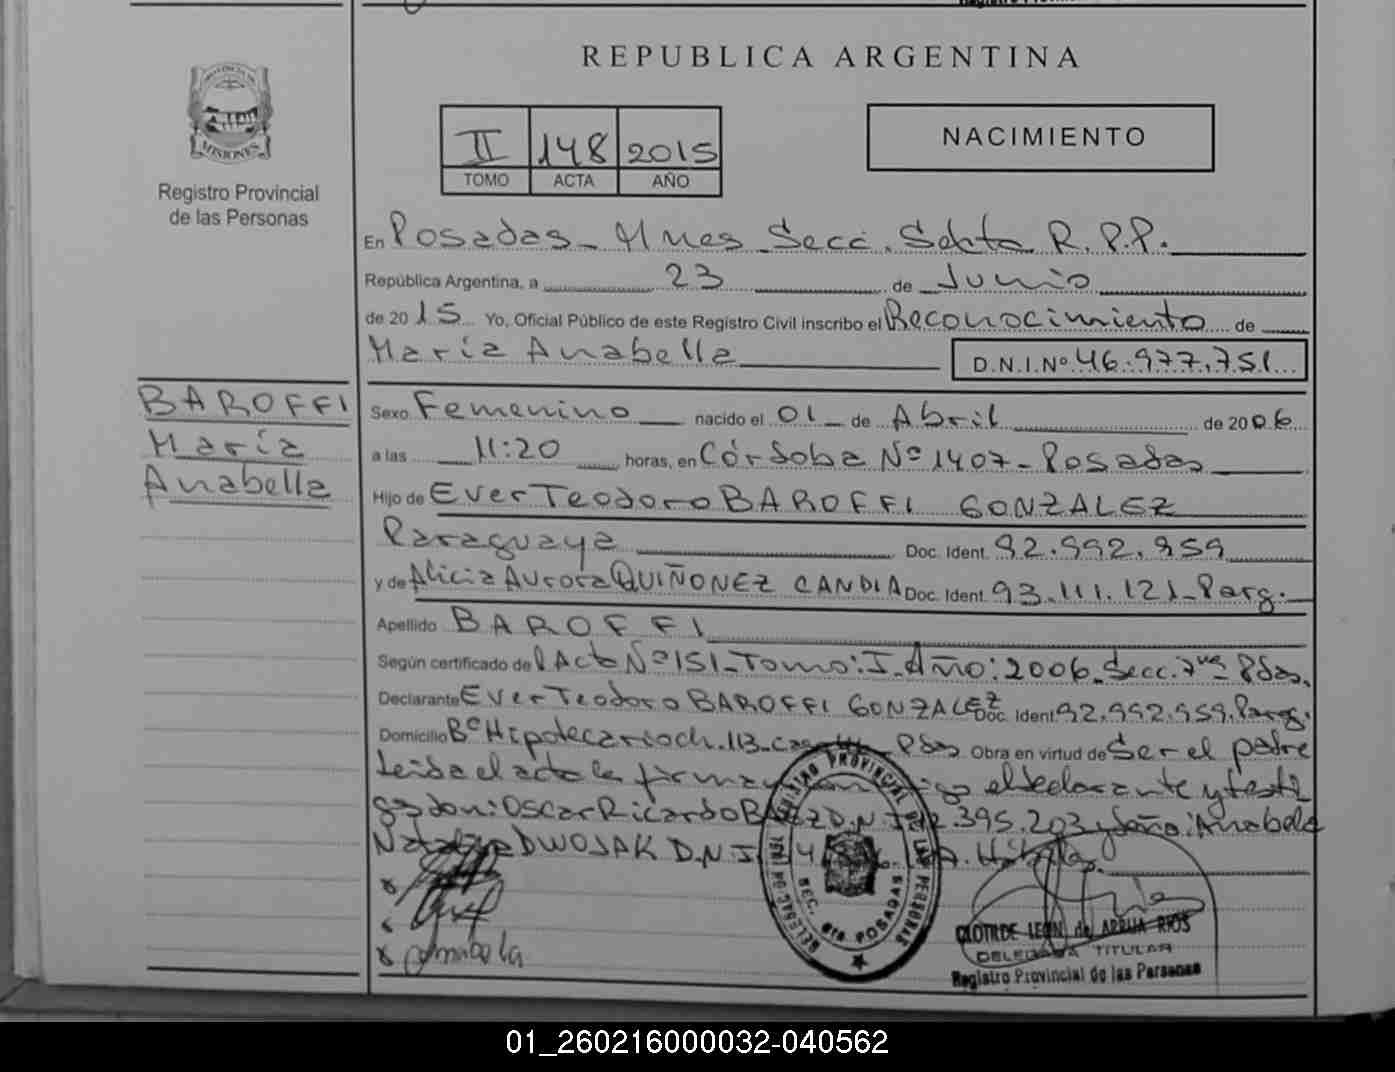 REPUBLICA ARGENTINA
PROVINCIA DE
MISIONES
Registro Provincial
de las Personas
II 148 2015
TOMO ACTA AÑO
NACIMIENTO
En Posadas - Mnes Secc. Sexta R.P.P.
República Argentina, a 23 de Junio
de 2015 Yo, Oficial Público de este Registro Civil inscribo el Reconocimiento de
María Anabella D.N.I.Nº 46.977.751
BAROFFI
María
Anabella
Sexo Femenino nacido el 01 de Abril de 2006
a las 11:20 horas, en Córdoba Nº 1407 - Posadas
Hijo de Ever Teodoro BAROFFI GONZALEZ
Paraguaya Doc. Ident. 92.992.959
y de Alicia Aurora QUIÑONEZ CANDIA Doc. Ident. 93.111.121 - Parg.
Apellido BAROFFI
Según certificado del Acta Nº 151 - Tomo: I - Año: 2006 - Secc. 7ma - Pdas.
Declarante Ever Teodoro BAROFFI GONZALEZ Doc. Ident. 92.992.959. Parag.
Domicilio Bº Hipotecario ch. 113 - casa - Pdas Obra en virtud de Ser el padre
Leida el acta la firma el declarante y testi
gos don: Oscar Ricardo D.N.I. .395.203 y doña: Anabela
Natalia DWOJAK D.N.I.
Anabela
REGISTRO PROVINCIAL DE LAS PERSONAS
SEC. 6ta POSADAS
CLOTILDE LEON de ARRUA RIOS
DELEGADA TITULAR
Registro Provincial de las Personas
01_260216000032-040562